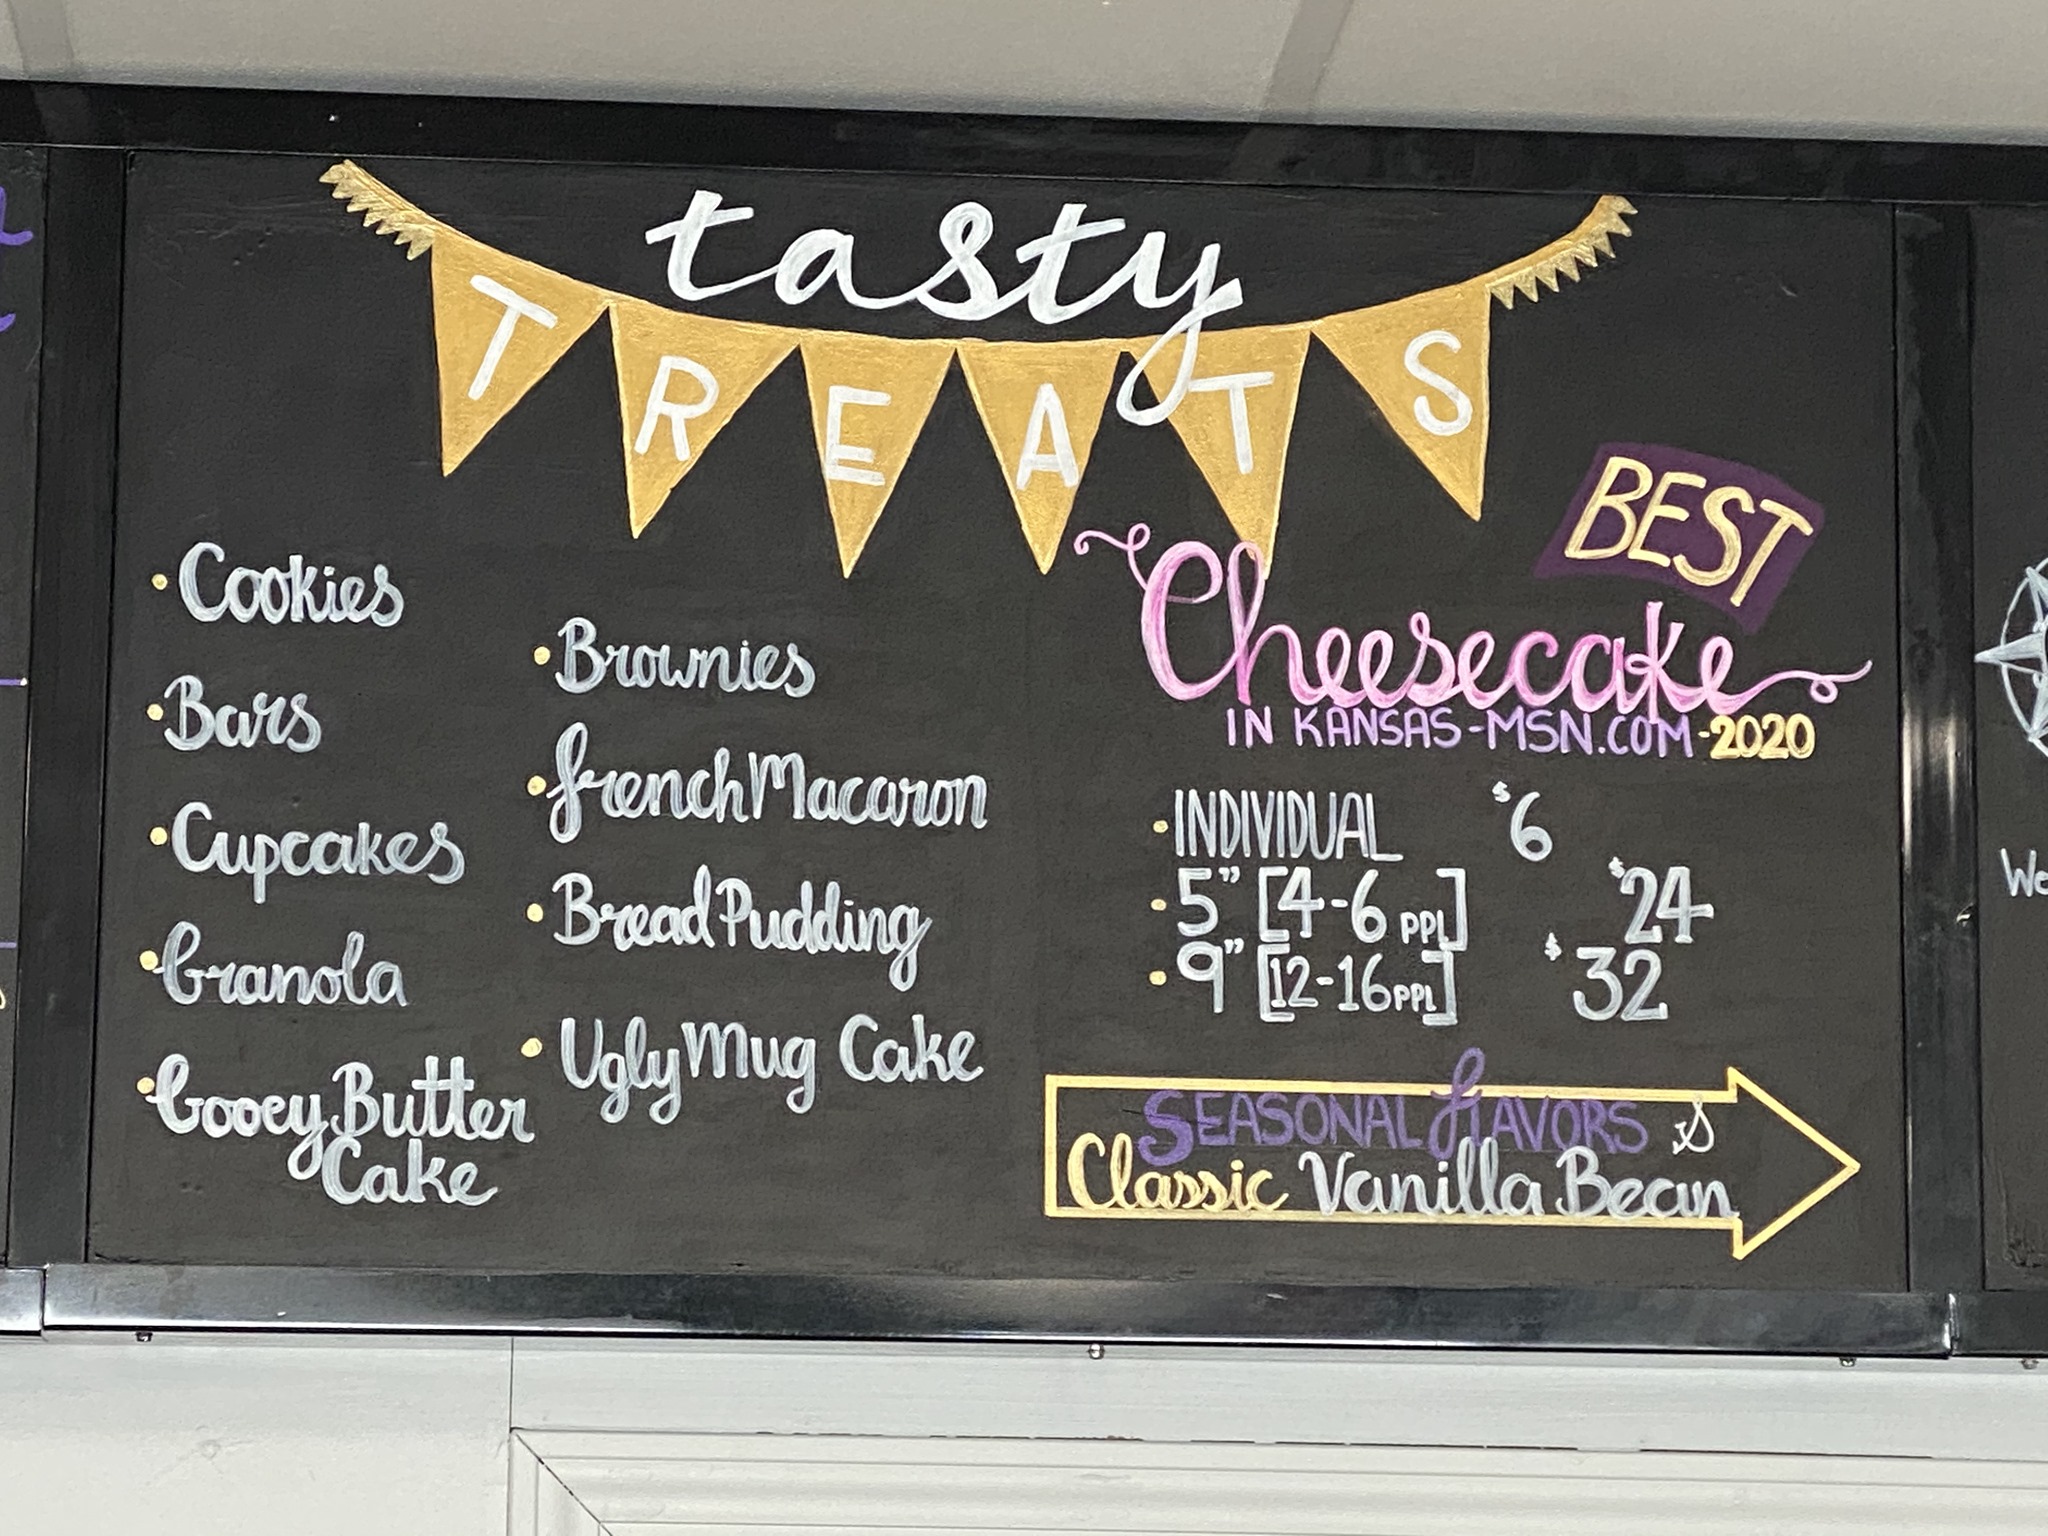 tasty
TREATS
• Cookies
• Bars
• Cupcakes
• Granola
• Gooey Butter
Cake
• Brownies
• French Macaron
• Bread Pudding
• Ugly Mug Cake
BEST
Cheesecake
IN KANSAS-MSN.COM-2020
• INDIVIDUAL $6
• 5" [4-6 PPL] $24
• 9" [12-16 PPL] $32
SEASONAL FLAVORS &
Classic Vanilla Bean
We